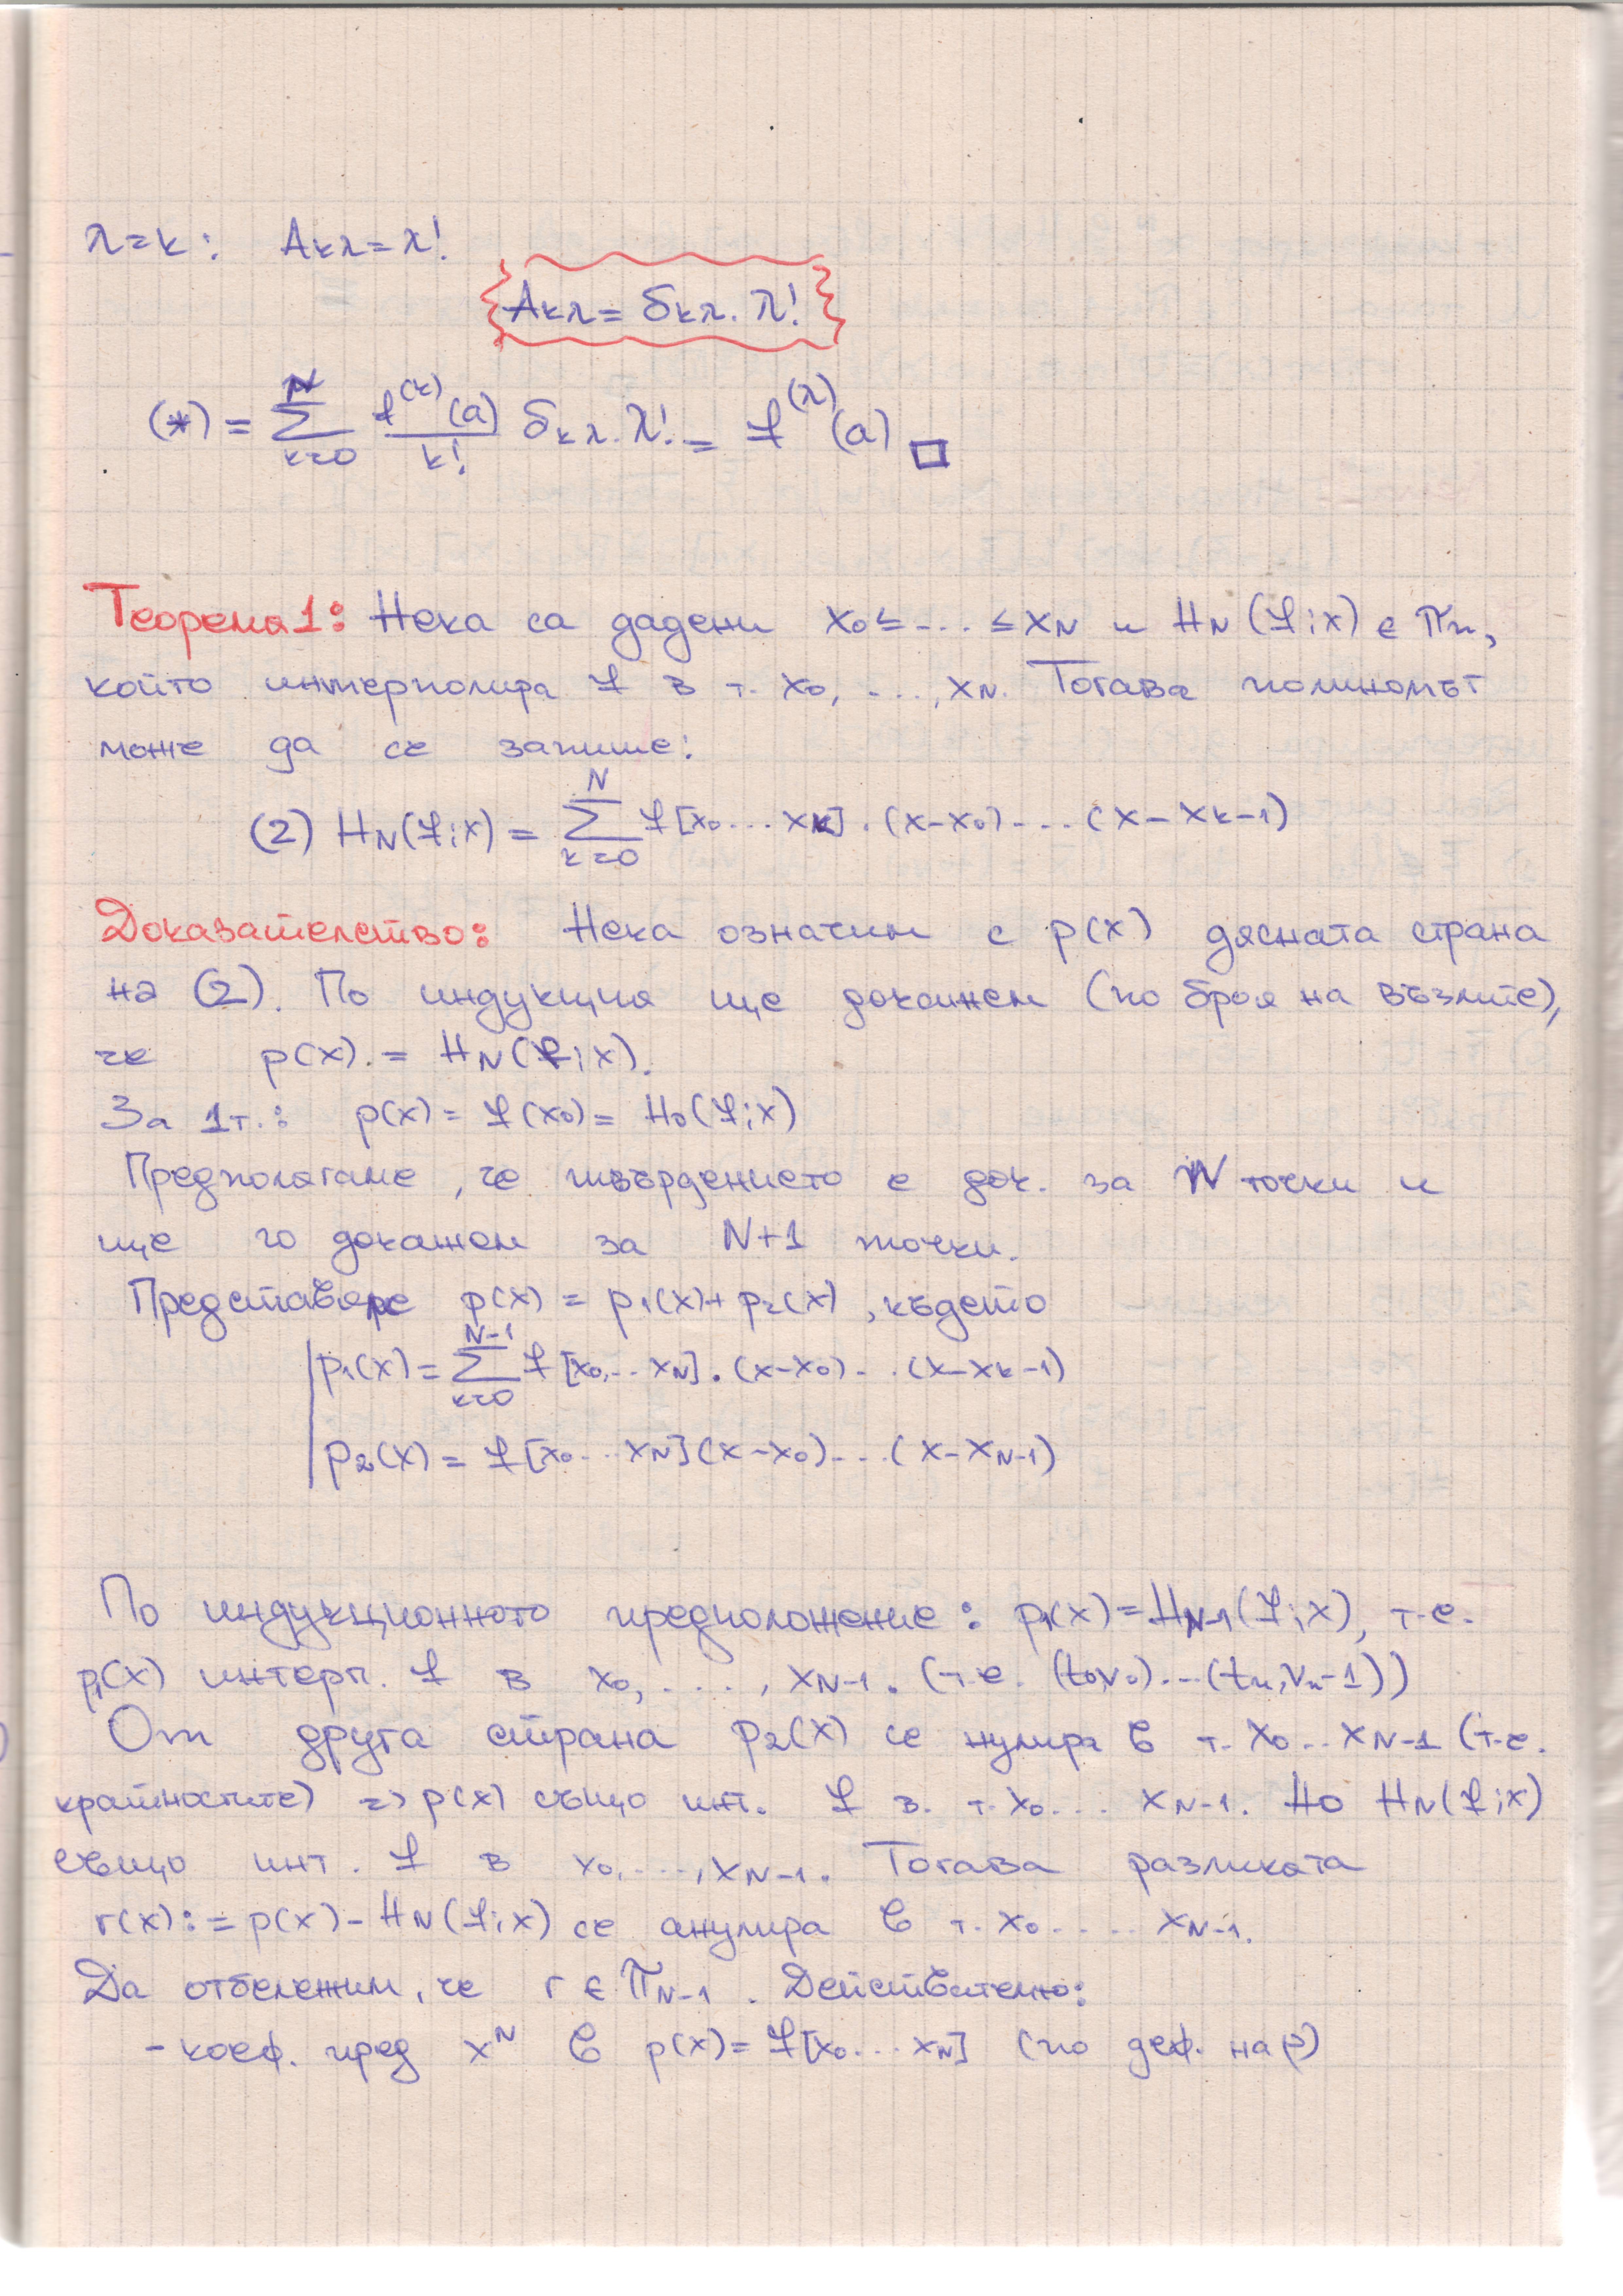 λ=k: Aкλ=λ!
Aкλ= δкλ. λ!
(*) = N∑k=0 f⁽ᵏ⁾(a)/k! δкλ. λ! = f⁽λ⁾(a) □
Теорема1: Нека са дадени x₀≤...≤xN и HN(f;x) ∈ πn,
който интерполира f в т. x₀, ..., xN. Тогава полиномът
може да се запише:
(2) HN(f;x) = N∑k=0 f[x₀...xk].(x-x₀)...(x-xk-1)
Доказателство: Нека означим с p(x) дясната страна
на (2). По индукция ще докажем (по броя на възлите),
че p(x).= HN(f;x).
За 1т.: p(x)= f(x₀)= H₀(f;x)
Предполагаме, че твърдението е док. за N точки и
ще го докажем за N+1 точки.
Представяме p(x) = p₁(x)+ p₂(x), където
p₁(x)= N-1∑k=0 f[x₀,..xN].(x-x₀)...(x-xk-1)
p₂(x)= f[x₀...xN](x-x₀)...(x-xN-1)
По индукционното предположение: p₁(x)=HN-1(f;x), т.е.
p₁(x) интерп. f в x₀, ...., xN-1. (т.е. (t₀,ν₀)...(tn,νn-1))
От друга страна p₂(x) се нулира в т. x₀...xN-1 (т.е.
кратностите) => p(x) също инт. f в. т. x₀.... xN-1. Но HN(f;x)
също инт. f в x₀,...., xN-1. Тогава разликата
r(x):= p(x)- HN(f;x) се анулира в т. x₀..... xN-1.
Да отбележим, че r ∈ πN-1. Действително:
- коеф. пред xᴺ в p(x)= f[x₀...xN] (по деф. на p)